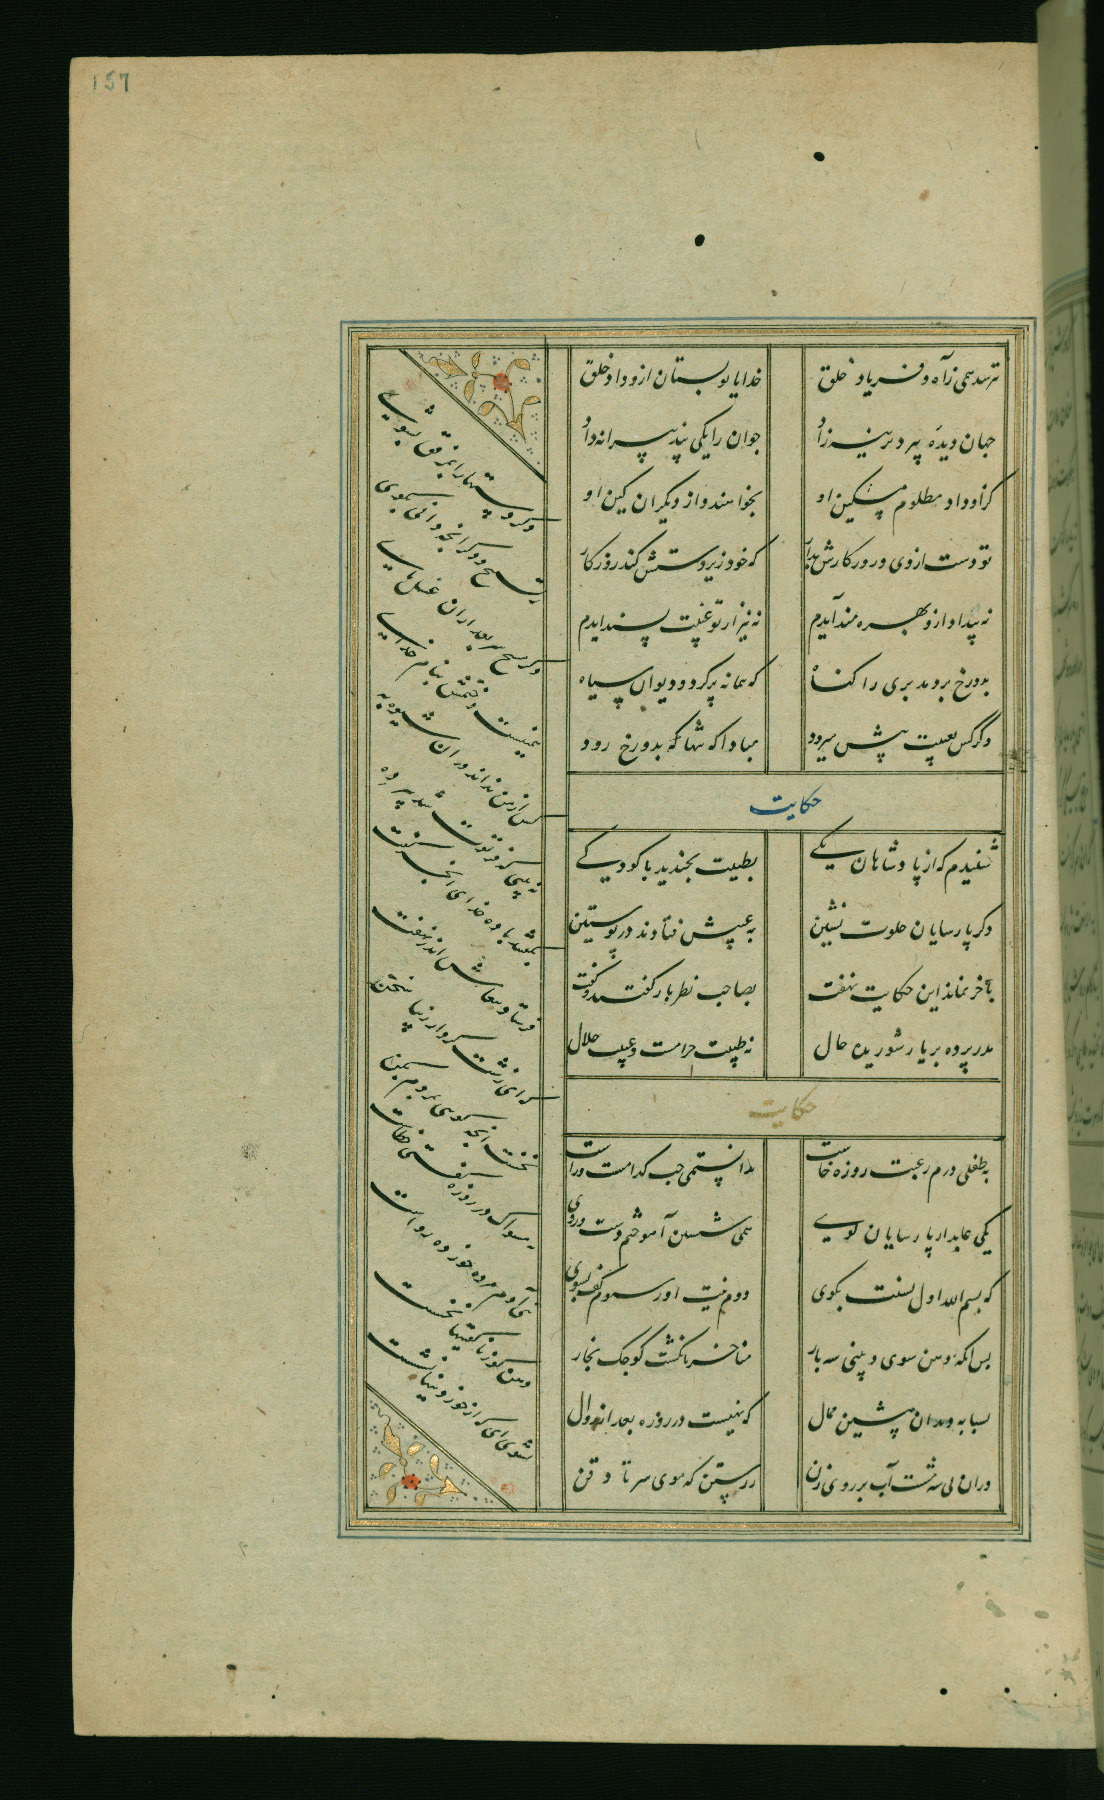 نترسد همی زآه و فریاد خلق خدایا تو بستان ازو داد خلق
جهان دیدهٔ پیر دیرینه زاد جوان را یکی پند پیرانه داد
کزو داد مظلوم مسکین او بخواهند و از دیگران کین او
تو دست از وی و روزکارش بدار که خود زیردستش کند روزکار
نه بیداد ازو بهره مند آیدم نه نیز از تو غیبت پسند ایدم
بدوزخ برد مدبری را کناه که پیمانه پر کرد و دیوان سیاه
دکر کس بغیبت پیش میدود مبادا که تنها بدوزخ رود
حکایت
شنیدم که از پادشاهان یکے بطیبت بخندید با کودکے
دکر پارسایان خلوت نشین به عیبش فتادند در پوستین
بآخر نماند این حکایت نهفت بصاحب نظر باز کفتند و کفت
مدر پرده بر یار شوریده حال نه طیبت حرامست و غیبت حلال
حکایت
به طفلی درم رغبت روزه خاست ندانستمی چپ کدامست و راست
یکی عابد از پارسایان کوے همی شستن آموختم دست و روی
که بسم الله اول بسنت بکوی دوم نیت اور سوم کف بشوی
پس انکه دهن شوی و بینی سه بار مناخر بانکشت کوچک بخار
بسبابه دندان پیشین بمال که نهیست در روزه بعد از زوال
وزان پس سه مشت آب بر روی زن ز رستنکه موی سر تا ذقن
دکر دستها را بمرفق بشوے
ز تسبیح و ذکر انچه دانی بکوی
دکر مسح سر بعد ازان غسل پاے
همینست و ختمش بنام خداے
کس از من نداند درین شیوه به
نه بینی که فرتوت شد پیر ده
بکفتند با ده خدای انچه کفت
فرستاد و پیغامش اندر نهفت
که ای زشت کردار زیبا سخن
نخست انچه کوی بمردم بکن
نه مسواک در روزه کفتی خطاست
بنی آدم مرده خوردن رواست
دهن کو ز ناکفتنیها نخست
بشوی ای که از خوردنیها بشست
157